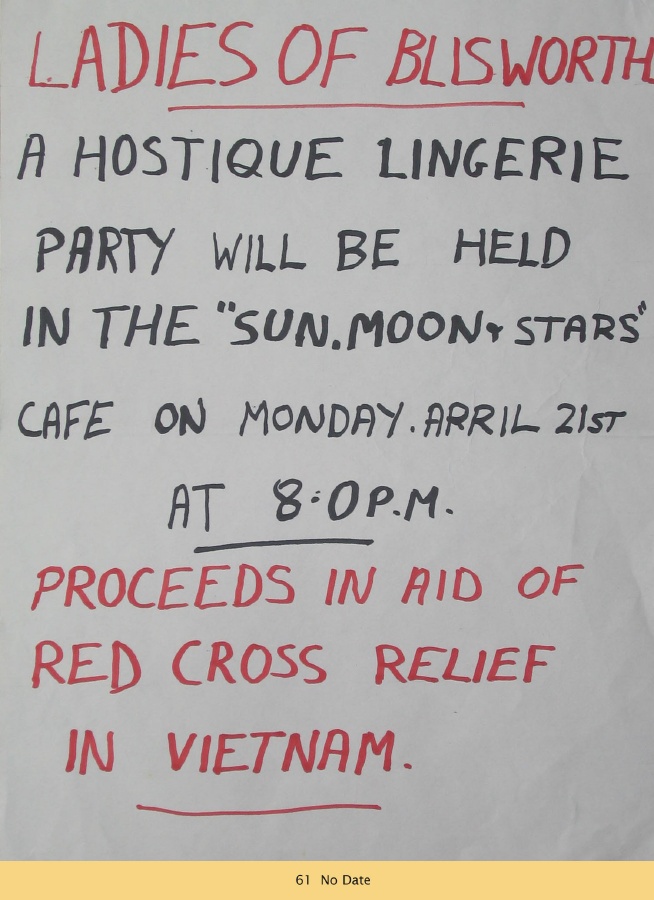 LADIES OF BLISWORTH
A HOSTIQUE LINGERIE
PARTY WILL BE HELD
IN THE "SUN.MOON & STARS"
CAFE ON MONDAY.APRIL 21ST
AT 8.0P.M.
PROCEEDS IN AID OF
RED CROSS RELIEF
IN VIETNAM.
61 No Date